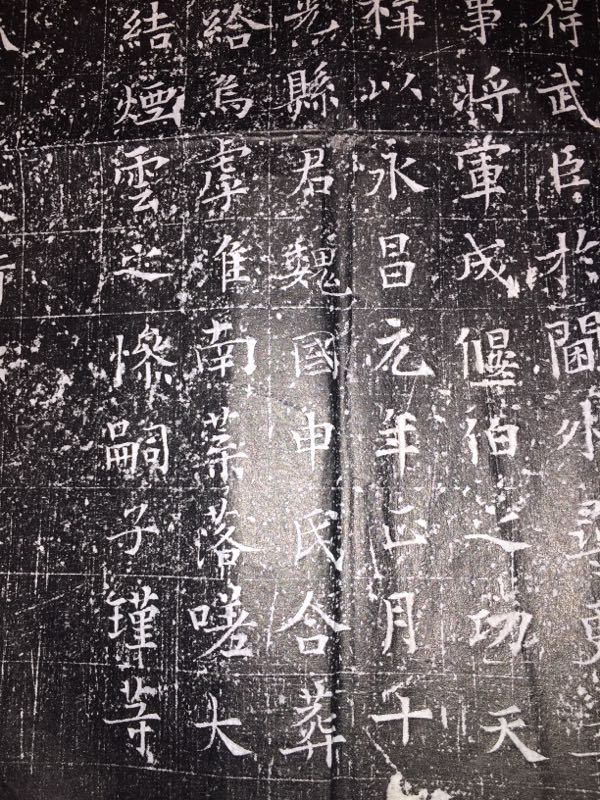 得武臣於閫外尋
事將軍成偃伯之功天
稱以永昌元年正月十
縣君魏國申氏合葬
給烏虖淮南葉落嗟大
結煙雲之慘嗣子瑾等